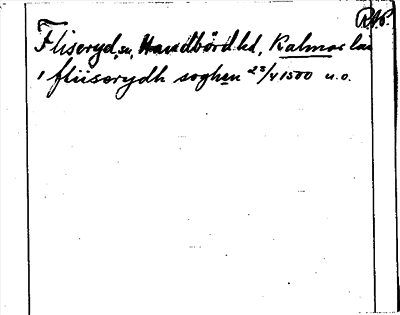 RAP.
Fliseryd, sn, Handbörd hd, Kalmar län
i fliiserydh soghen 23/4 1500 u.o.